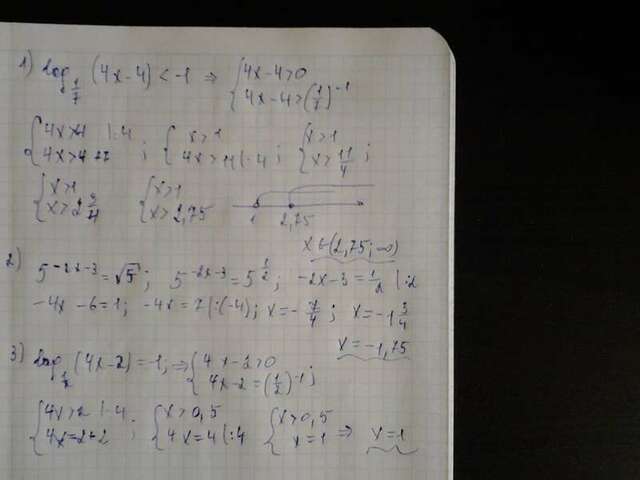 1) log_{1/7} (4x-4) < -1 ⇒ { 4x-4>0
4x-4>(1/7)^{-1}
{ 4x>4 |:4
4x>4+7 ; { x>1
4x>11 |:4 ; { x>1
x>11/4 ;
{ x>1
x>2 3/4 { x>1
x>2,75 1 2,75
x∈(2,75; ∞)
2) 5^{-2x-3} = √5 ; 5^{-2x-3} = 5^{1/2} ; -2x-3 = 1/2 |·2
-4x-6=1; -4x=7 |:(-4); x=-7/4 ; x=-1 3/4
x=-1,75
3) log_{1/2} (4x-2) = -1; ⇒ { 4x-2>0
4x-2=(1/2)^{-1};
{ 4x>2 |:4
4x=2+2 ; { x>0,5
4x=4 |:4 { x>0,5
x=1 ⇒ x=1